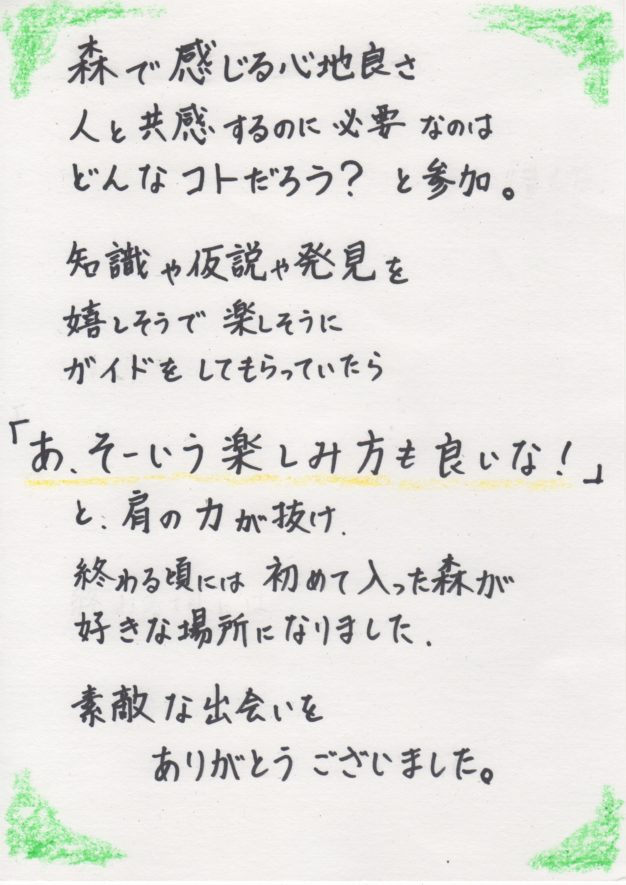 森で感じる心地良さ
人と共感するのに必要なのは
どんなコトだろう？と参加。
知識や仮説や発見を
嬉しそうで楽しそうに
ガイドをしてもらっていたら
「あ、そーいう楽しみ方も良いな！」
と、肩の力が抜け、
終わる頃には初めて入った森が
好きな場所になりました。
素敵な出会いを
ありがとうございました。